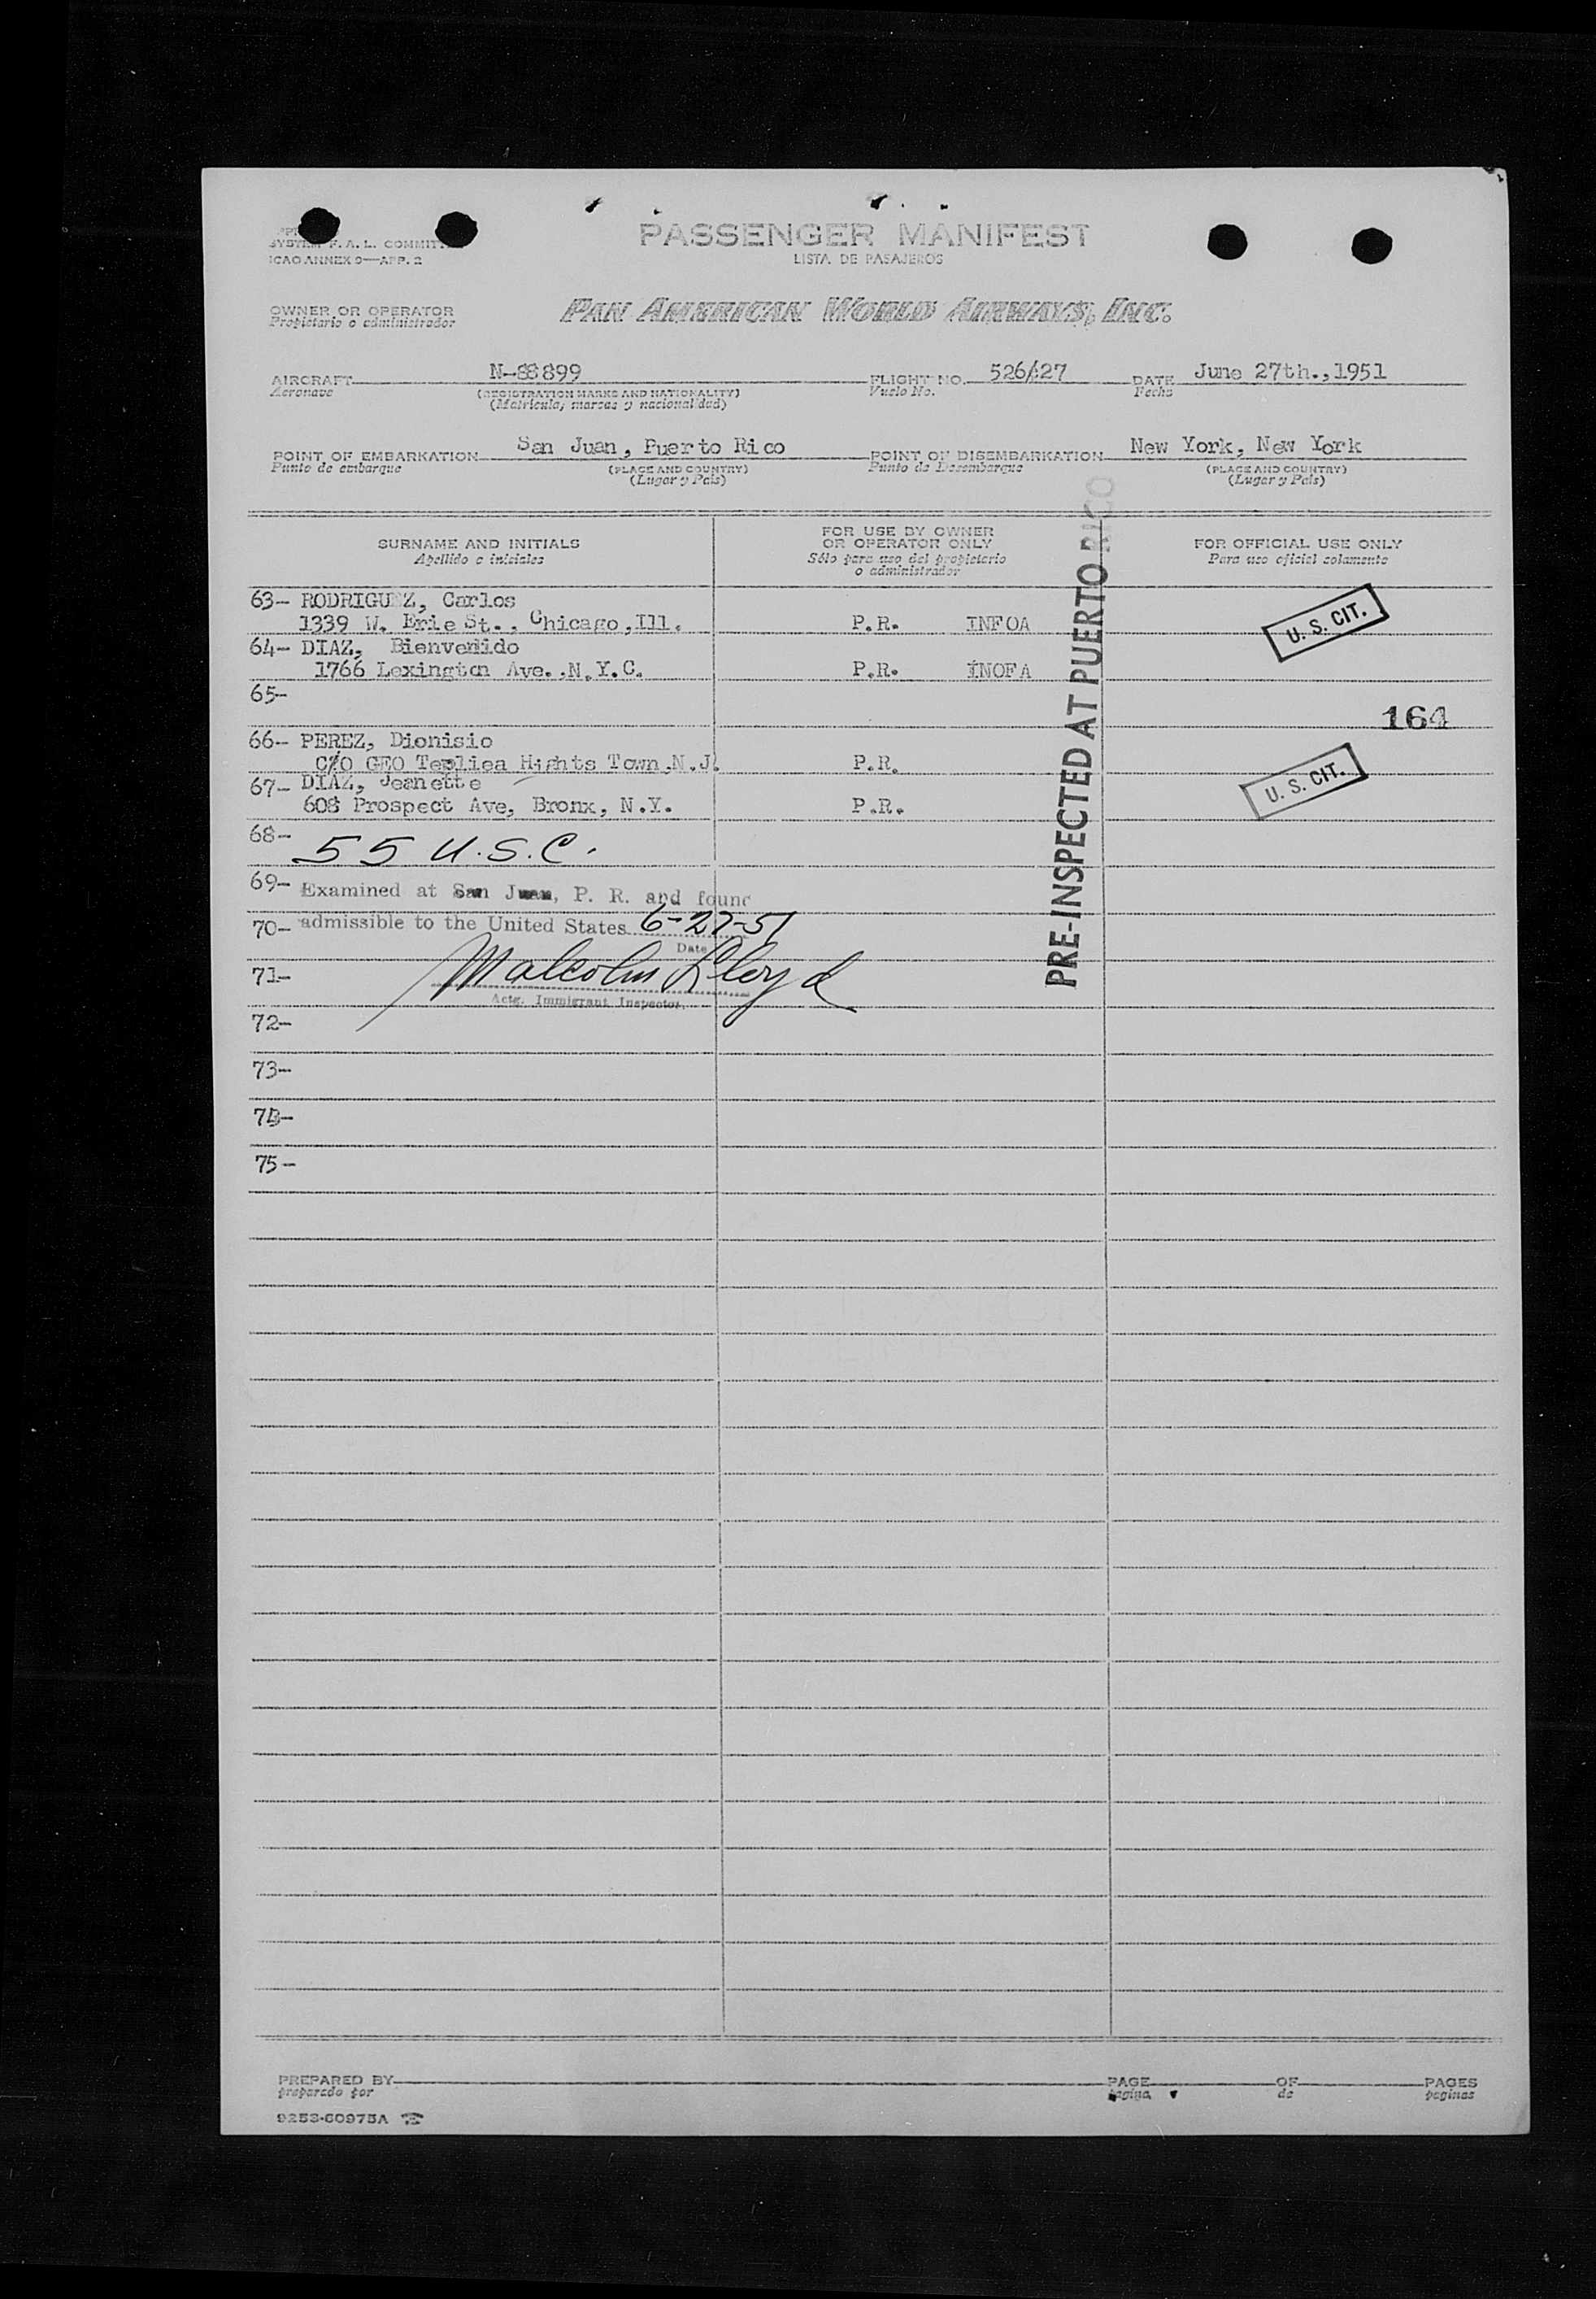 SYSTEM F. A. L. COMMITT
ICAO ANNEX 9—APP. 2
PASSENGER MANIFEST
LISTA DE PASAJEROS
OWNER OR OPERATOR
Propietario o administrador
PAN AMERICAN WORLD AIRWAYS, INC.
AIRCRAFT N-88899 FLIGHT NO. 526/627 DATE June 27th.,1951
Aeronave (REGISTRATION MARKS AND NATIONALITY) Vuelo No. Fecha
(Matricula, marcas y nacionalidad)
POINT OF EMBARKATION San Juan, Puerto Rico POINT OF DISEMBARKATION New York, New York
Punto de embarque (PLACE AND COUNTRY) Punto de Desembarque (PLACE AND COUNTRY)
(Lugar y País) (Lugar y País)
SURNAME AND INITIALS
Apellido e iniciales
FOR USE BY OWNER
OR OPERATOR ONLY
Sólo para uso del propietario
o administrador
FOR OFFICIAL USE ONLY
Para uso oficial solamente
63- RODRIGUEZ, Carlos
1339 W. Erie St., Chicago,Ill. P.R. INFOA
U. S. CIT.
64- DIAZ, Bienvenido
1766 Lexington Ave. ,N.Y.C. P.R. INOFA
65-
164
66- PEREZ, Dionisio
C/O GEO Teplica Hights Town,N.J. P.R.
67- DIAZ, Jeanette
608 Prospect Ave, Bronx, N.Y. P.R.
U. S. CIT.
68- 55 U.S.C.
69- Examined at San Juan, P. R. and found
70- admissible to the United States 6-27-51
Date
71- Malcolm Lloyd
Actg. Immigrant Inspector.
72-
73-
74-
75-
PRE-INSPECTED AT PUERTO RICO
PREPARED BY PAGE OF PAGES
preparado por pagina de paginas
9253-60975A